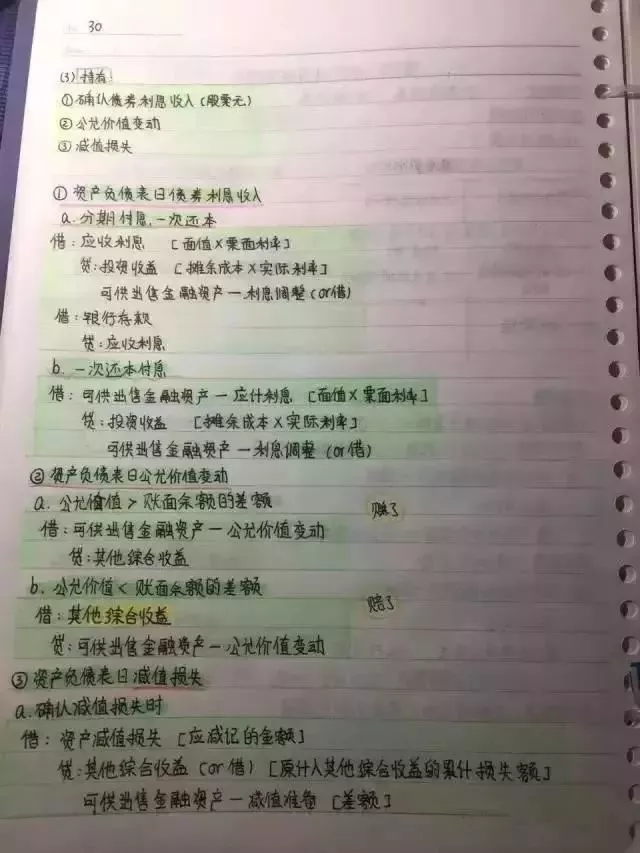 30
(3) 持有:
① 确认债券利息收入 (股票无)
② 公允价值变动
③ 减值损失
① 资产负债表日债券利息收入
a. 分期付息、一次还本
借: 应收利息 [面值×票面利率]
贷: 投资收益 [摊余成本×实际利率]
可供出售金融资产—利息调整 (or借)
借: 银行存款
贷: 应收利息
b. 一次还本付息
借: 可供出售金融资产—应计利息 [面值×票面利率]
贷: 投资收益 [摊余成本×实际利率]
可供出售金融资产—利息调整 (or借)
② 资产负债表日公允价值变动
a. 公允价值 > 账面余额的差额 赚了
借: 可供出售金融资产—公允价值变动
贷: 其他综合收益
b. 公允价值 < 账面余额的差额
借: 其他综合收益 赔了
贷: 可供出售金融资产—公允价值变动
③ 资产负债表日减值损失
a. 确认减值损失时
借: 资产减值损失 [应减记的金额]
贷: 其他综合收益 (or借) [原计入其他综合收益的累计损失额]
可供出售金融资产—减值准备 [差额]